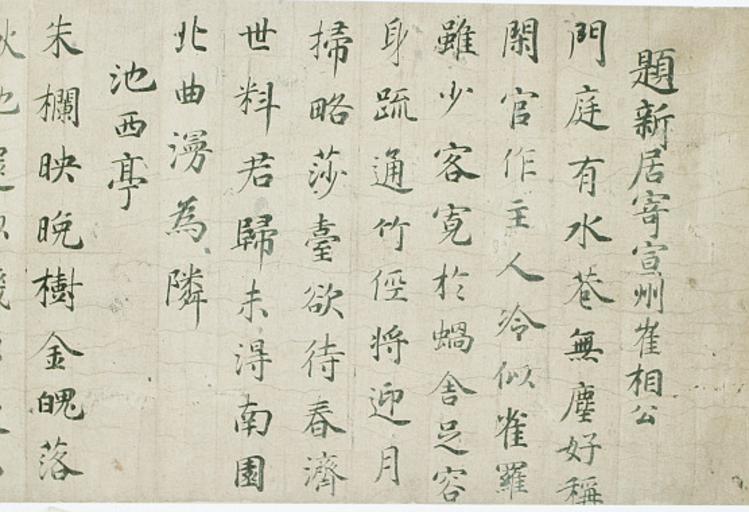 題新居寄宣州崔相公
門庭有水巷無塵好稱
閑官作主人冷似雀羅
雖少客寛於蝸舎足容
身疏通竹俓將迎月
掃略莎臺欲待春濟
世料君歸未得南園
北曲漫為隣
池西亭
朱欄映晚樹金魄落